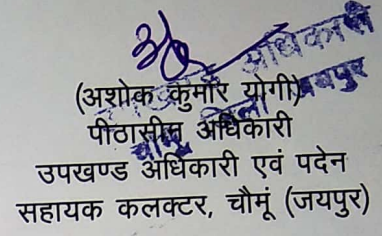 (अशोक कुमार योगी)
पीठासीन अधिकारी
उपखण्ड अधिकारी एवं पदेन
सहायक कलक्टर, चौमूं (जयपुर)
अधिकारी
जयपुर